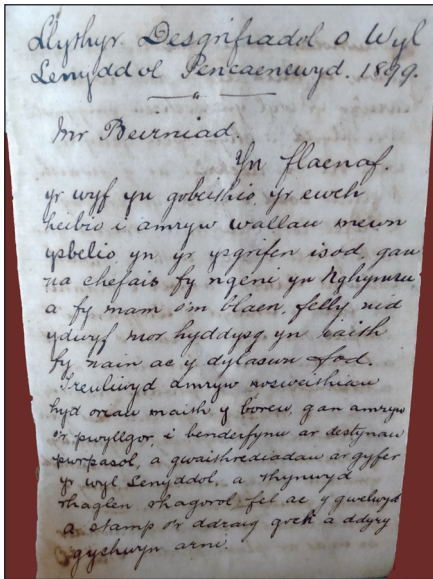 Llythyr Desgrifiadol o Wyl
Lenyddol Pencaenewyd. 1899.
Mr Beirniad.
Yn flaenaf.
yr wyf yn gobeithio, yr ewch
heibio i amryw wallau mewn
ysbelio yn yr ysgrifen isod, gan
na chefais fy ngeni yn Nghymru
a fy mam o'm blaen, felly nid
ydwyf mor hyddysg yn iaith
fy nain ac y dylaswn fod.
Treuliwyd amryw nosweithiau
hyd oriau maith y boreu, gan amryw
o'r pwyllgor, i benderfynu ar destynau
pwrpasol, a gweithrediadau ar gyfer
yr wyl Lenyddol, a thynwyd
rhaglen ragorol fel ac y gwelwyd
a stamp o'r ddraig goch a ddyry
gychwyn arni.